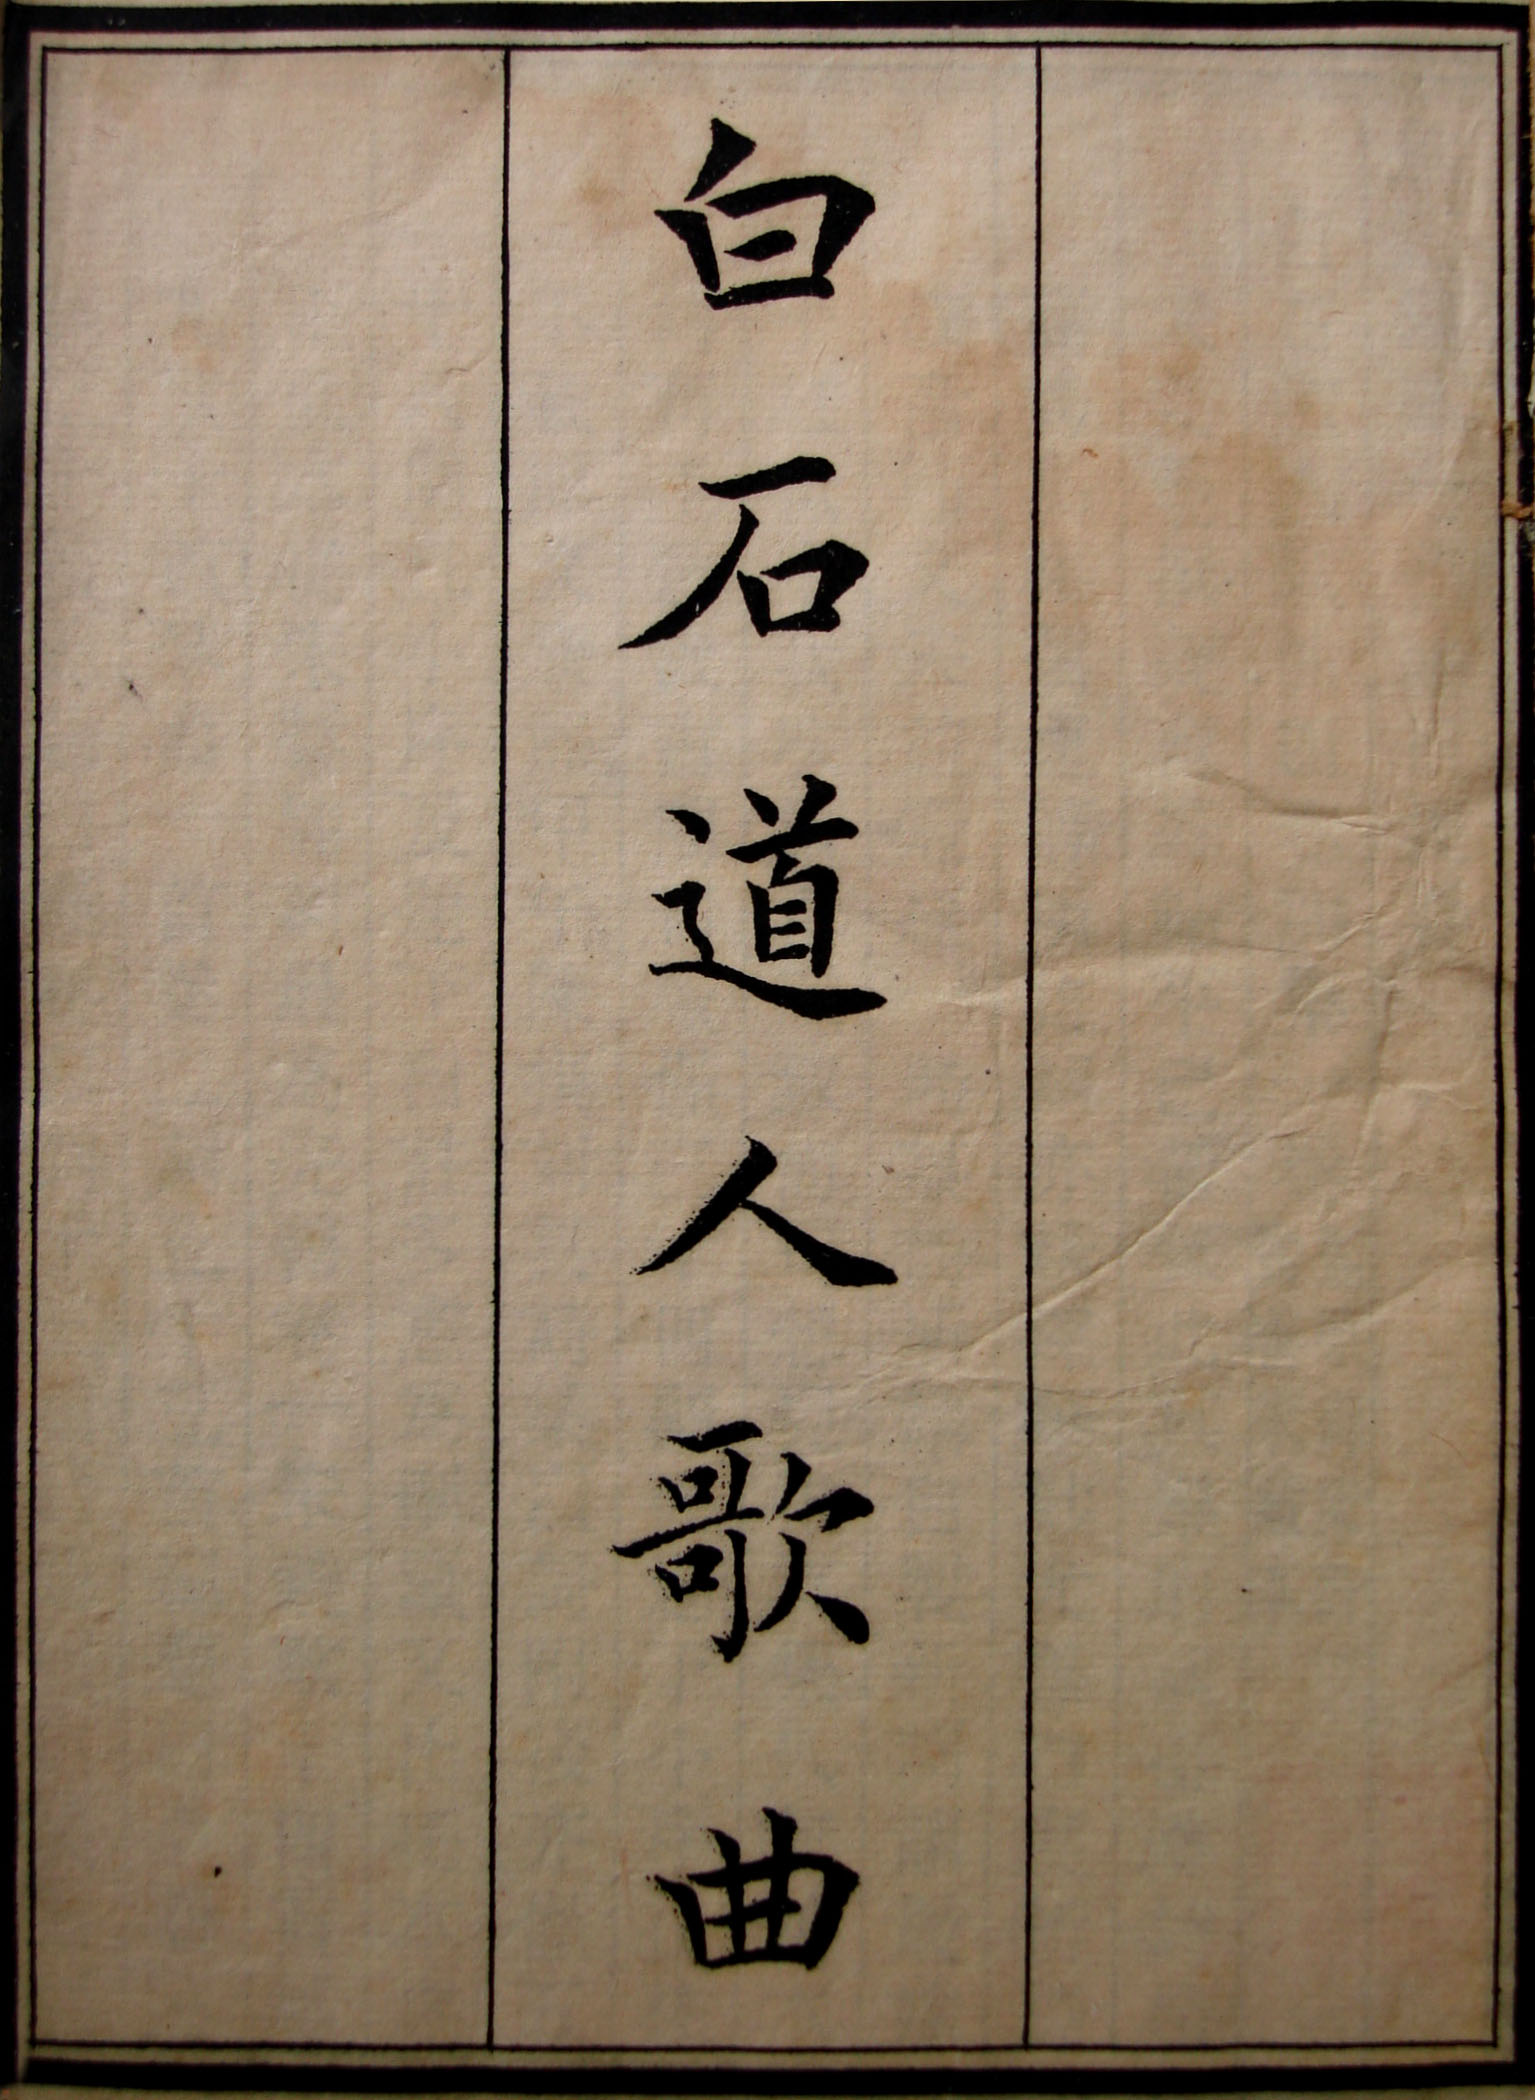 白石道人歌曲